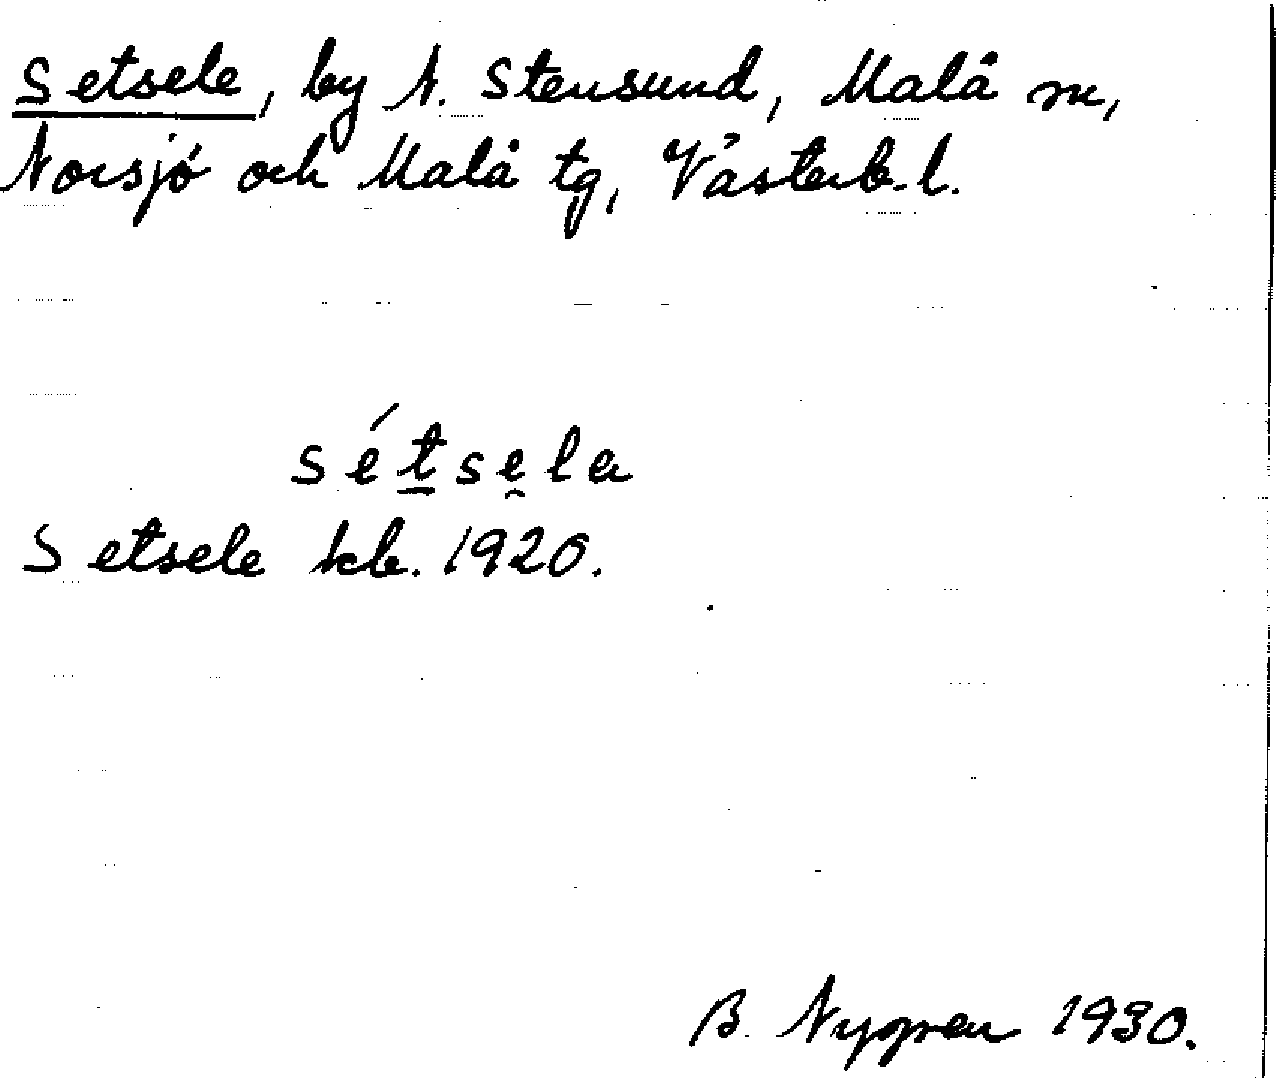 Setsele, by N. Stensund, Malå sn,
Norsjö och Malå tg, Västerb. l.
sétse̯la
Setsele kb. 1920.
B. Nygren 1930.